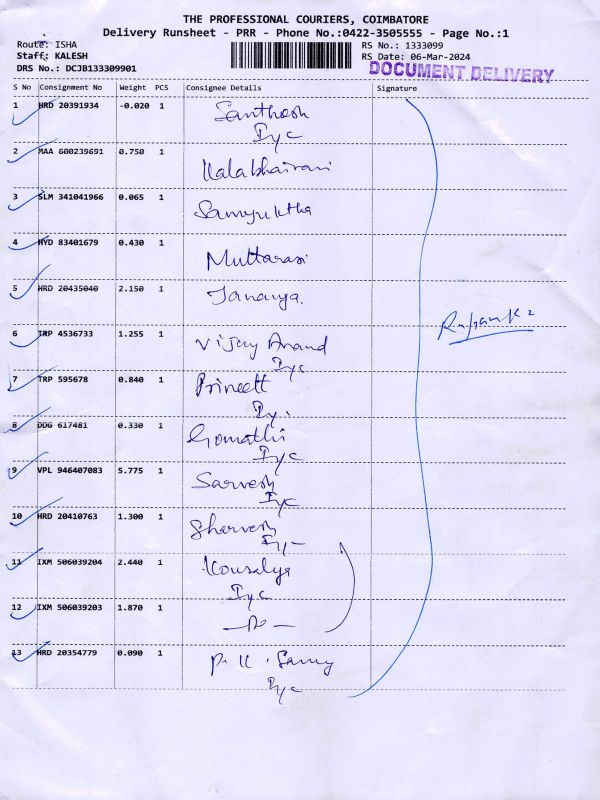 THE PROFESSIONAL COURIERS, COIMBATORE
Delivery Runsheet - PRR - Phone No.:0422-3505555 - Page No.:1
Route: ISHA
Staff: KALESH
DRS No.: DCJB133309901
RS No.: 1333099
RS Date: 06-Mar-2024
DOCUMENT DELIVERY
S No Consignment No Weight PCS Consignee Details Signature
1 HRD 20391934 -0.020 1 Santhosh
Iyc
2 MAA 600239691 0.750 1 Kalabhairavi
3 SLM 341041966 0.065 1 Samyuktha
4 HYD 83401679 0.430 1 Muttarasi
5 HRD 20435040 2.150 1 Jananya.
6 TRP 4536733 1.255 1 Vijay Anand
Iyc
7 TRP 595678 0.840 1 Prineett
Iy.
8 DDG 617481 0.330 1 Gomathi
Iyc
9 VPL 946407083 5.775 1 Sarvesh
Iyc
10 HRD 20410763 1.300 1 Sharvesh
Iy-
11 IXM 506039204 2.440 1 Kousalya
Iyc
12 IXM 506039203 1.870 1
13 HRD 20354779 0.090 1 P. K. Samy
Iyc